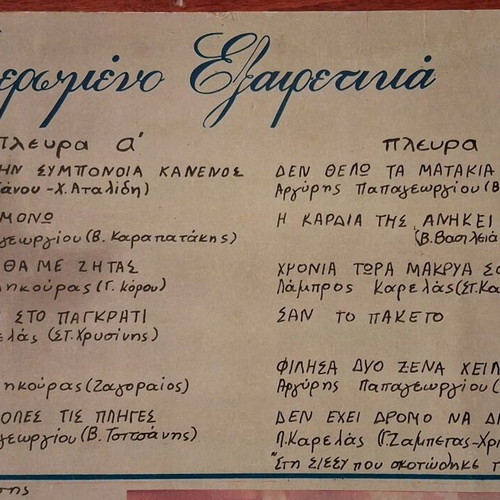 ερωμένο Εξαιρετικά
πλευρα α'
ΗΝ ΣΥΜΠΟΝΟΙΑ ΚΑΝΕΝΟΣ
άνου-Χ.Αταλίδη)
ΜΟΝΩ
γεωργίου (Β. Καραπατάκης)
ΘΑ ΜΕ ΖΗΤΑΣ
ηκούρας (Γ. Κόρου)
ΣΤΟ ΠΑΓΚΡΑΤΙ
λάς (ΣΤ. Χρυσίνης)
ηκούρας (Ζαγοραίος)
ΟΛΕΣ ΤΙΣ ΠΛΗΓΕΣ
γεωργίου (Β. Τσιτσάνης)
πλευρα
ΔΕΝ ΘΕΛΩ ΤΑ ΜΑΤΑΚΙΑ
Αργύρης Παπαγεωργίου (Β
Η ΚΑΡΔΙΑ ΤΗΣ ΑΝΗΚΕΙ
(Β. Βασιλειά
ΧΡΟΝΙΑ ΤΩΡΑ ΜΑΚΡΥΑ ΣΟ
Λάμπρος Καρελάς (ΣΤ. Κα
ΣΑΝ ΤΟ ΠΑΚΕΤΟ
ΦΙΛΗΣΑ ΔΥΟ ΞΕΝΑ ΧΕΙΛ
Αργύρης Παπαγεωργίου (
ΔΕΝ ΕΧΕΙ ΔΡΟΜΟ ΝΑ ΔΙ
Λ. Καρελάς (Γ. Ζαμπετας-Χρη
"Στη Σίσσυ που σκοτώθηκε τ